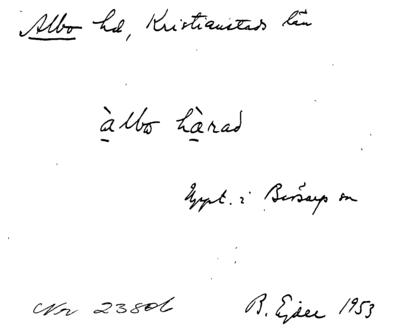 Albo hd, Kristianstads län
àlbo hàrad
Uppt. i Brösarp sn
Nr 2380b
B. Ejder 1953